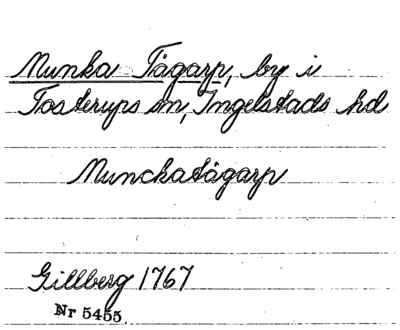 Munka Tågarp, by i
Tosterups sn, Ingelstads hd
Munckatågarp
Gillberg 1767
Nr 5455